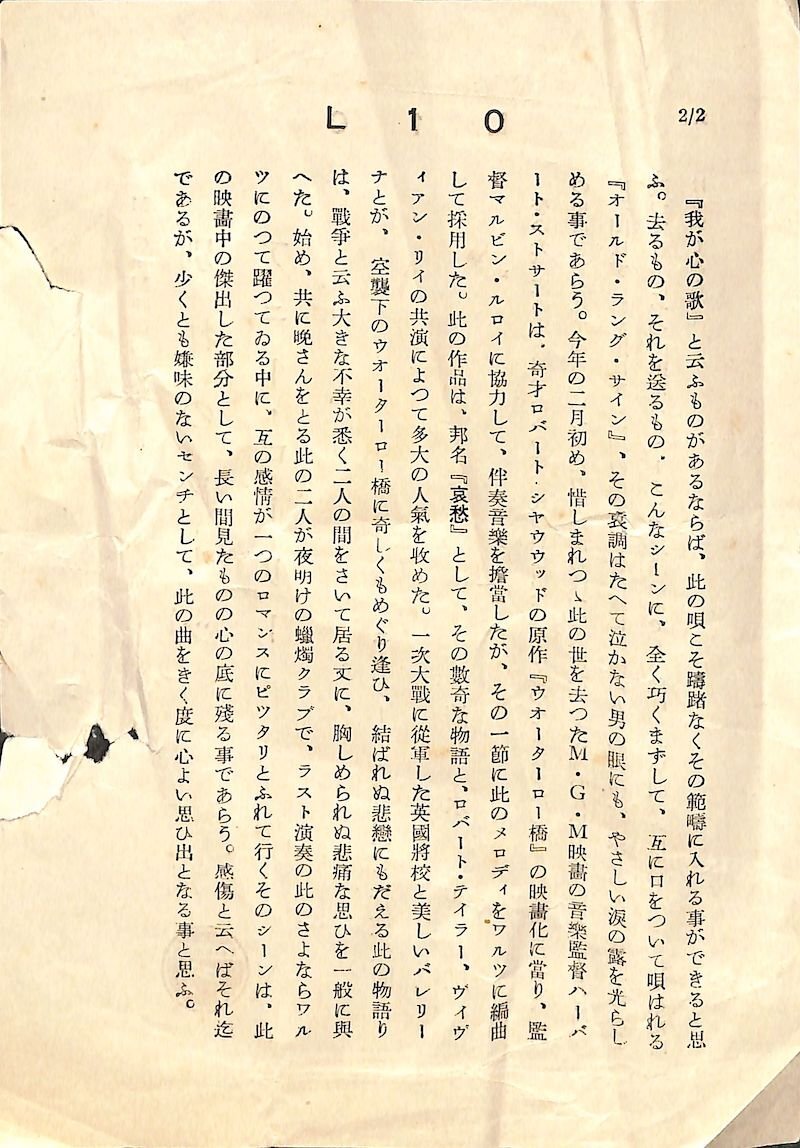 2/2
L 1 0
『我が心の歌』と云ふものがあるならば、此の唄こそ躊躇なくその範疇に入れる事ができると思
ふ。去るもの、それを送るもの、こんなシーンに、全く巧くまずして、互に口をついて唄はれる
『オールド・ラング・サイン』、その哀調はたへて泣かない男の眼にも、やさしい涙の露を光らし
める事であらう。今年の二月初め、惜しまれつゝ此の世を去つたＭ・Ｇ・Ｍ映畫の音樂監督ハーバ
ート・ストサートは、奇才ロバート・シヤウウッドの原作『ウオーターロー橋』の映畫化に當り、監
督マルビン・ルロイに協力して、伴奏音樂を擔當したが、その一節に此のメロディをワルツに編曲
して採用した。此の作品は、邦名『哀愁』として、その數奇な物語と、ロバート・テイラー、ヴィヴ
ィアン・リイの共演によつて多大の人氣を收めた。一次大戰に從軍した英國將校と美しいバレリー
ナとが、空襲下のウオーターロー橋に奇しくもめぐり逢ひ、結ばれぬ悲戀にもだえる此の物語り
は、戰爭と云ふ大きな不幸が悉く二人の間をさいて居る丈に、胸しめられぬ悲痛な思ひを一般に與
へた。始め、共に晩さんをとる此の二人が夜明けの蠟燭クラブで、ラスト演奏の此のさよならワル
ツにのつて躍つてゐる中に、互の感情が一つのロマンスにピツタリとふれて行くそのシーンは、此
の映畫中の傑出した部分として、長い間見たものの心の底に殘る事であらう。感傷と云へばそれ迄
であるが、少くとも嫌味のないセンチとして、此の曲をきく度に心よい思ひ出となる事と思ふ。